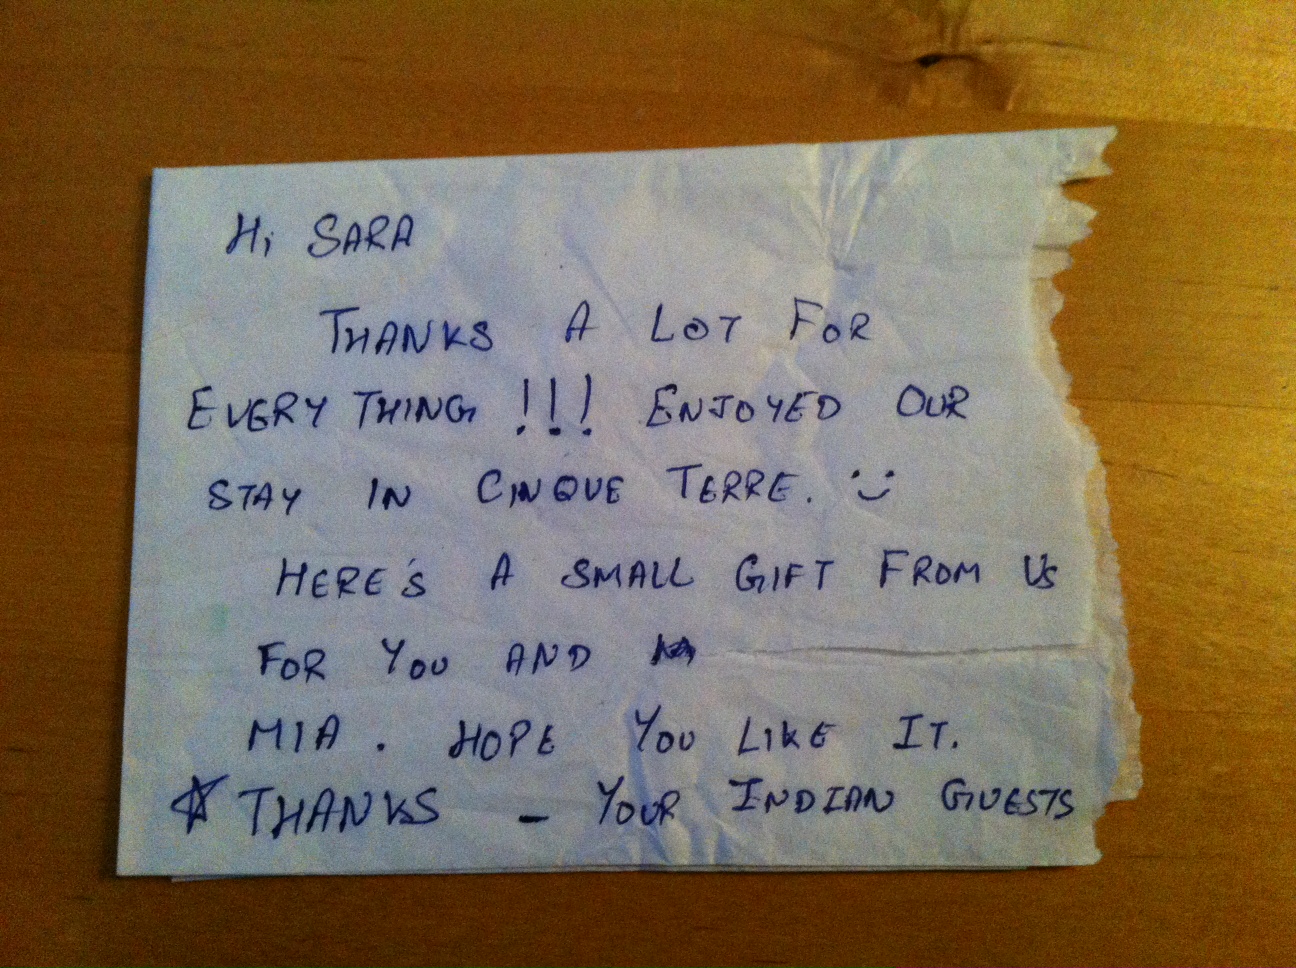 Hi SARA
THANKS A LOT FOR
EVERY THING !!! ENJOYED OUR
STAY IN CINQUE TERRE. :)
HERE'S A SMALL GIFT FROM US
FOR YOU AND
MIA. HOPE YOU LIKE IT.
☆ THANKS - YOUR INDIAN GUESTS